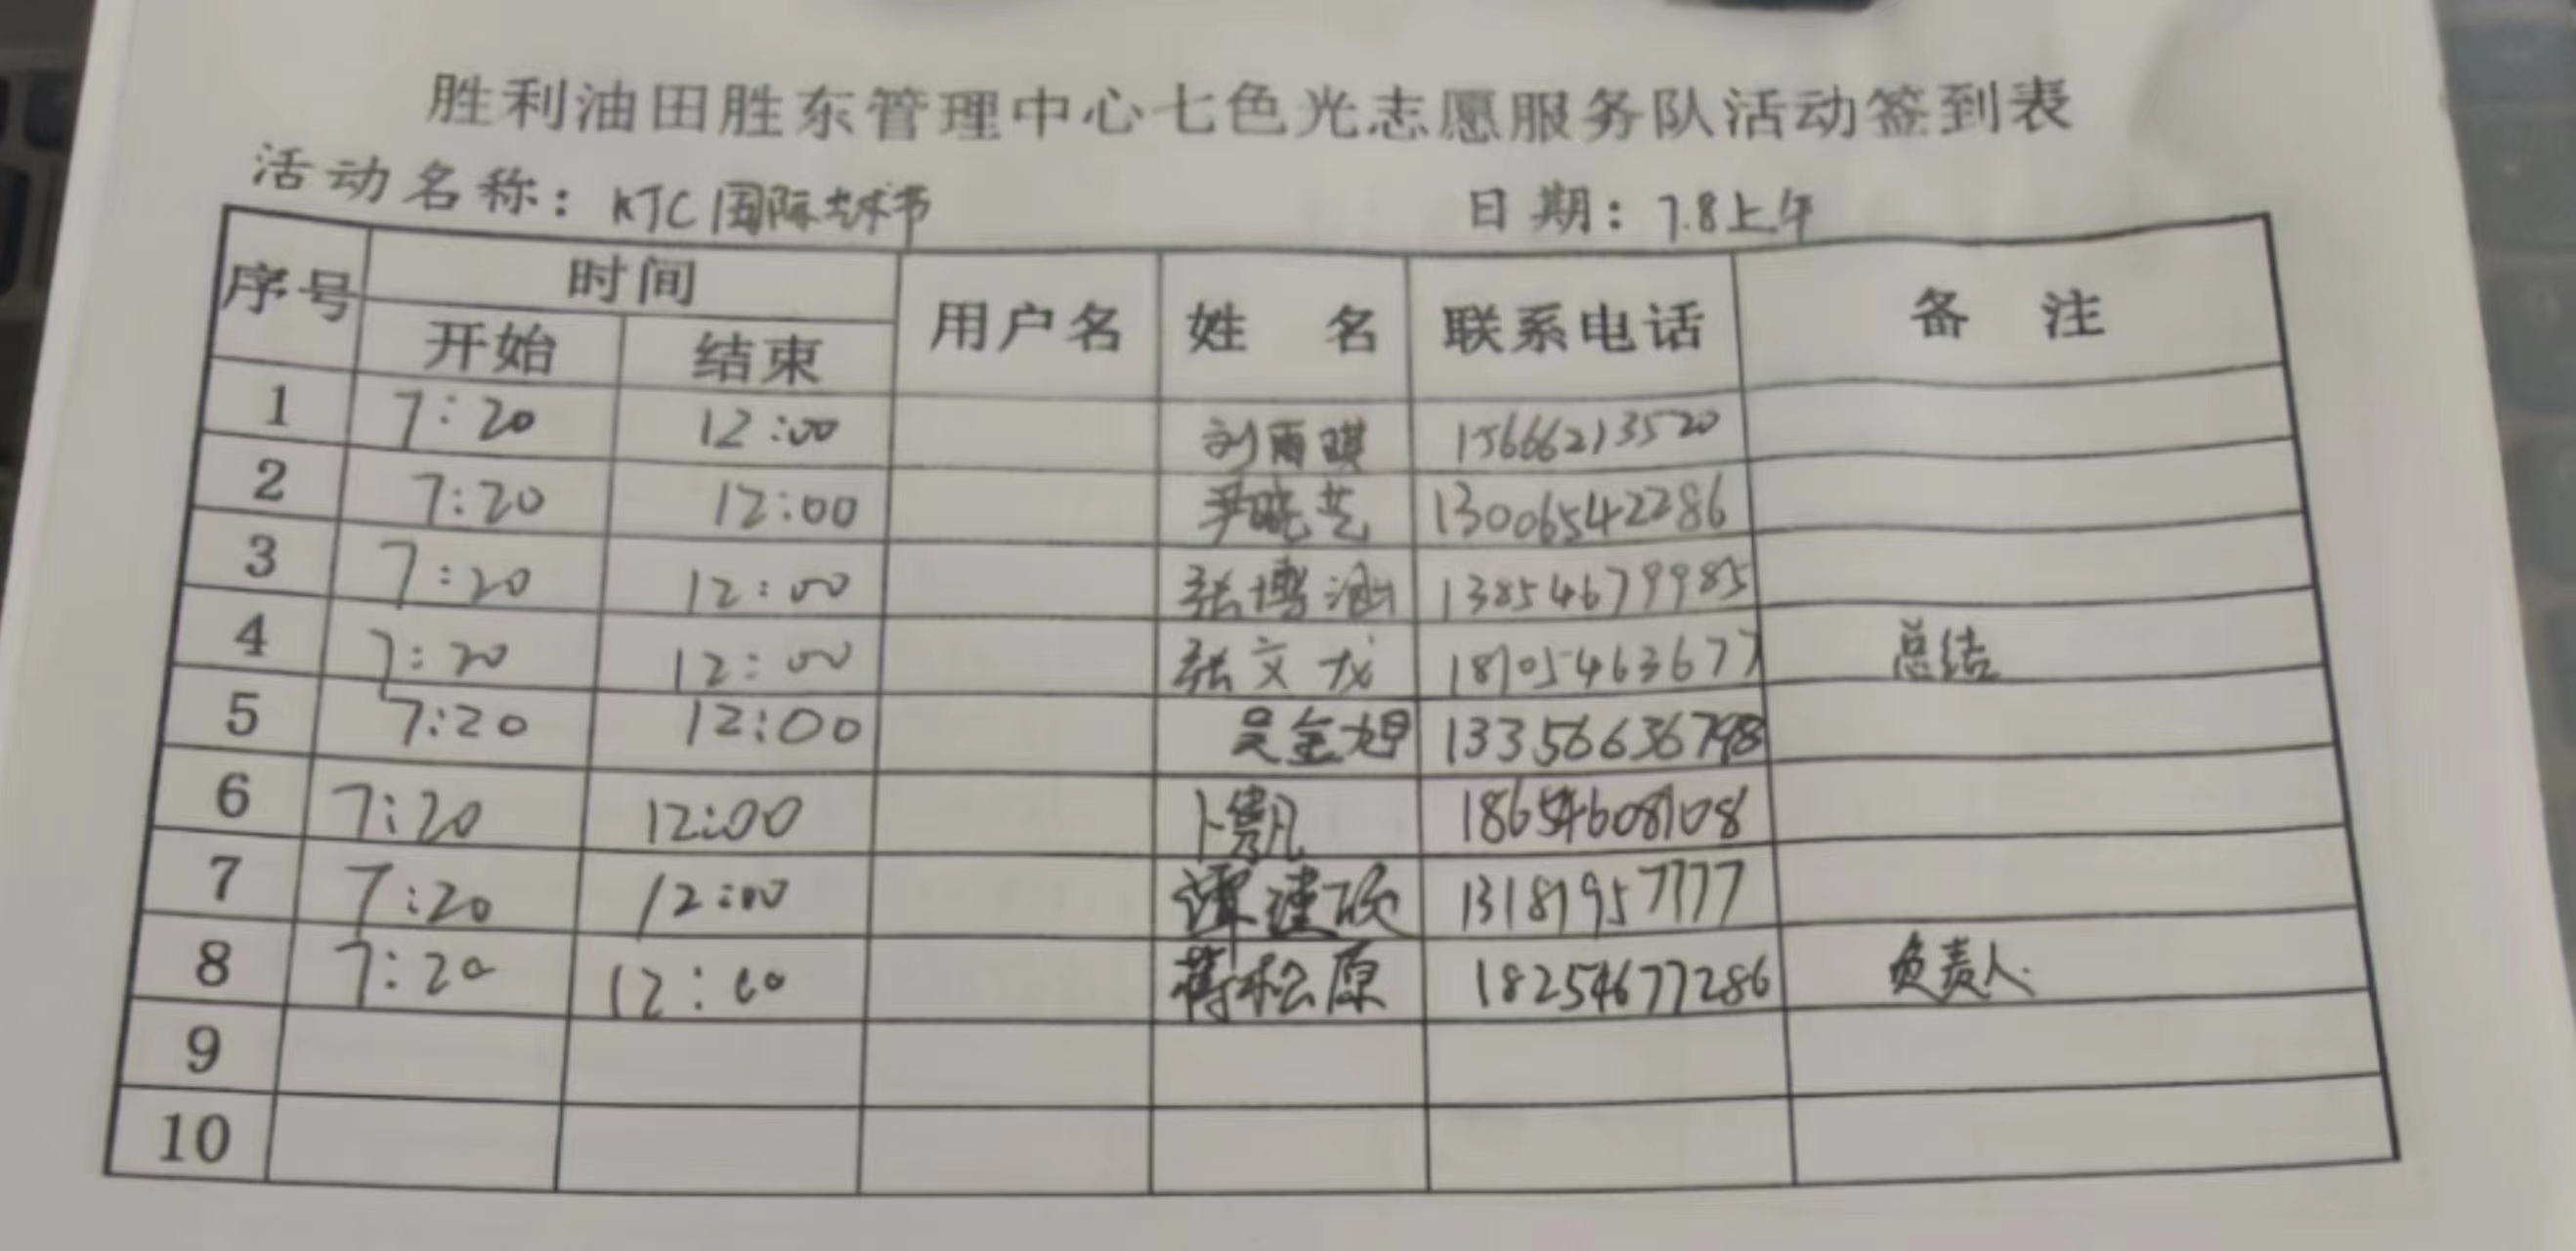 胜利油田胜东管理中心七色光志愿服务队活动签到表
活动名称：KTC国际艺术节 日期：7.8上午
序号 时间 用户名 姓 名 联系电话 备 注
开始 结束
1 7:20 12:00 刘雨琪 15666213520
2 7:20 12:00 尹晓艺 13006542286
3 7:20 12:00 张博涵 13854679985
4 7:20 12:00 张文龙 18105463677 总结
5 7:20 12:00 吴金旭 13356636798
6 7:20 12:00 18654608108
7 7:20 12:00 谭建硕 13181957777
8 7:20 12:00 蒋松原 18254677286 负责人
9
10